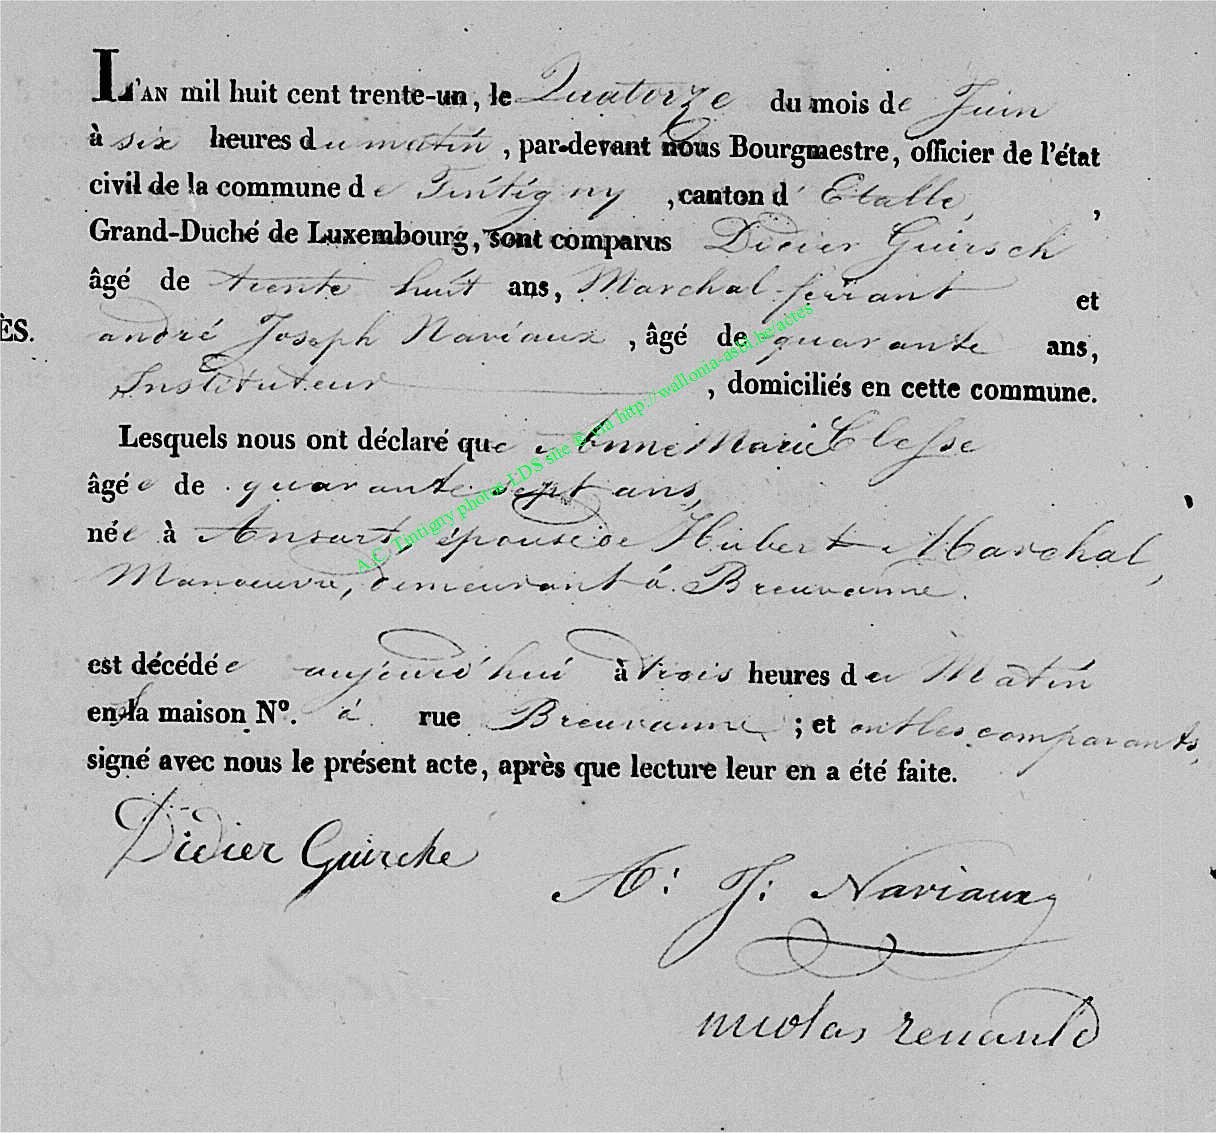 L'AN mil huit cent trente-un, le Quatorze du mois de Juin
à six heures du matin, par-devant nous Bourgmestre, officier de l'état
civil de la commune de Tintigny, canton d'Etalle,
Grand-Duché de Luxembourg, sont comparus Didier Guirsch
âgé de trente huit ans, Marchal-ferrant et
ÈS.
andré Joseph Naviaux, âgé de quarante ans,
Instituteur, domiciliés en cette commune.
Lesquels nous ont déclaré que Anne Marie Clesse
âgée de quarante sept ans,
née à Ansart, épouse de Hubert Marchal,
Manoeuvre, demeurant à Breuvanne.
est décédée aujourd'hui à trois heures du Matin
en la maison Nº. à rue Breuvanne; et ont les comparants,
signé avec nous le présent acte, après que lecture leur en a été faite.
Didier Guirche
A: J: Naviaux
nicolas renauld
A.C. Tintigny photos LDS site © via http://wallonia-asbl.be/actes